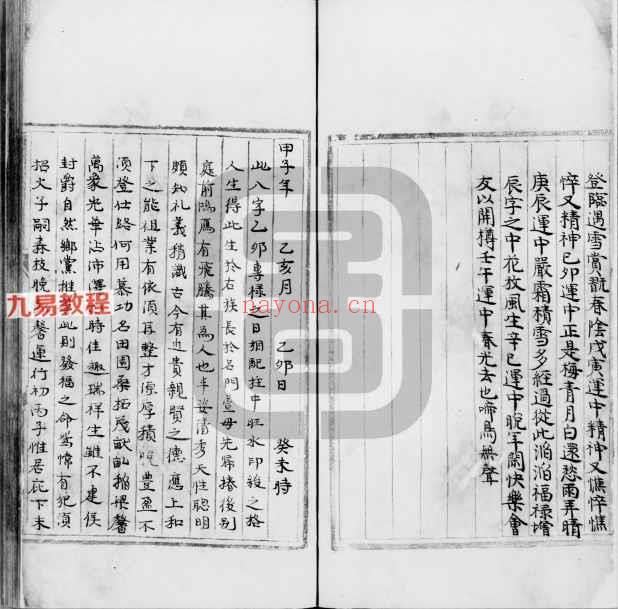 登臨遇雪賞翫春陰戊寅運中精神又憔悴憔
悴又精神己卯運中正是梅青月白還愁雨弄晴
庚辰運中嚴霜積雪多經過從此滔滔福祿增
辰字之中花放風生辛巳運中晚年閙快樂會
友以開樽壬午運中春光去也啼鳥無聲
甲子年 乙亥月 乙卯日 癸未時
此八字乙卯專祿之日相配柱中旺水印綬之格
人生得此生於右族長於名門萱母先歸椿後別
庭前鴻雁有飛騰其為人也丰姿清秀天性聰明
頗知礼義稍識古今有近貴親賢之德應上和
下之能祖業有依須再整才源厚積豐盈不
須登仕路何用慕功名田園桑柘茂畝畝稻粱馨
萬象光華沾沛澤時佳趣瑞祥生雖不建侯
封爵自然鄉黨推此則發福之命鸞幃有犯須
招火子嗣森枝晚馨運行初丙子惟居庇下未
九易教程
nayona.cn